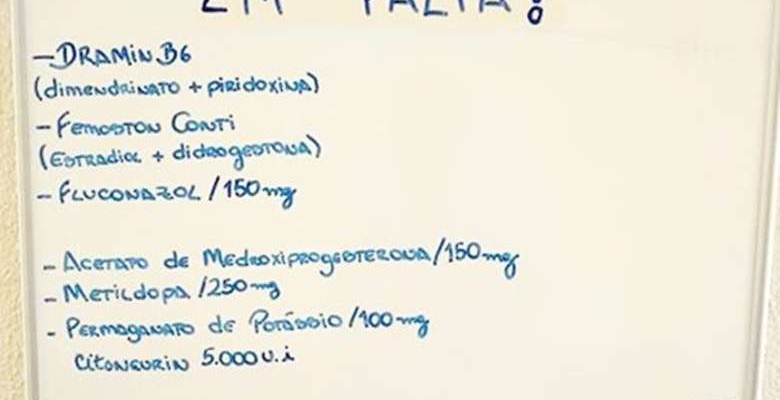 EM FALTA!
- DRAMIN B6
(dimendrinato + piridoxina)
- Femoston Conti
(Estradiol + didrogestona)
- Fluconazol / 150 mg
- Acetato de Medroxiprogesterona / 150 mg
- Metildopa / 250 mg
- Permaganato de Potássio / 100 mg
Citoneurin 5.000 u.i